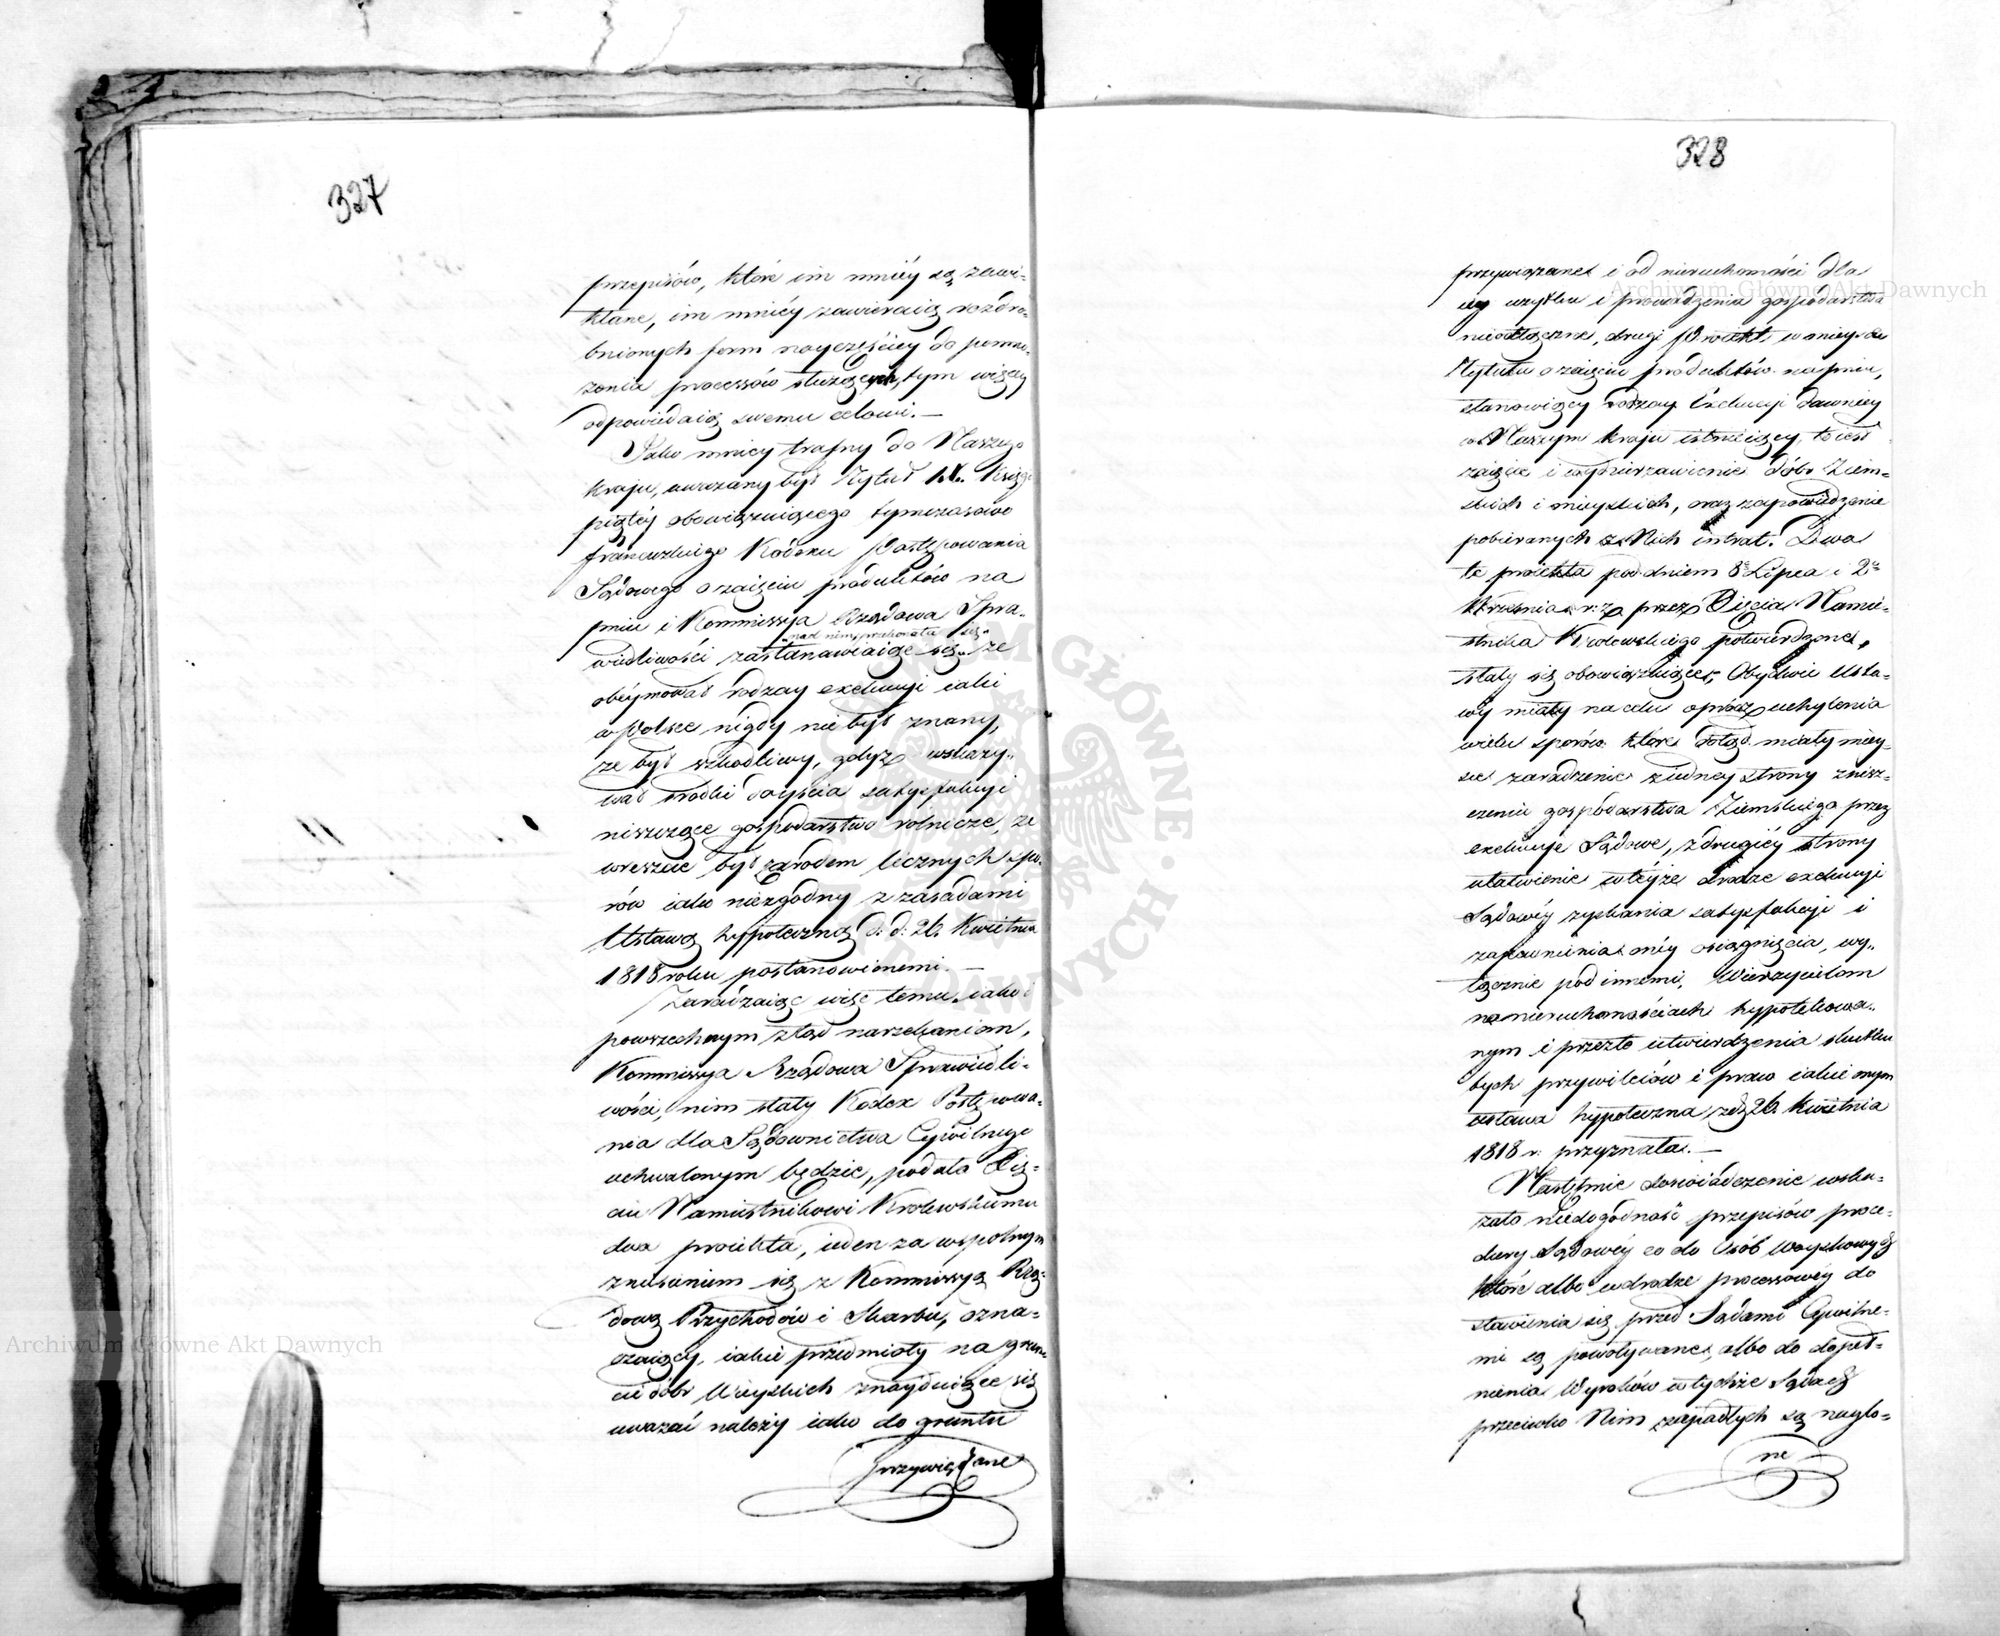 327
przepisów, które im mniéy są zawi-
kłane, im mniéy zawieraią rozdro-
bnionych form nayczęściey do pomno-
żenia processów służących, tym więcey
odpowiedaią swemu celowi. —
Jako mniey trafny do Naszego
kraju, uważany był Tytuł IX. Księgi
piątéy obowiązuiącego tymczasowo
francuzkiego Kodexu Postępowania
Sądowego o zaięciu produktów na
pniu i Kommissya Rządowa Spra-
nad nim, przekonała się
wiedliwości zastanawiaiąc się że
obeymował rodzay exekucyi iaki
w Polsce nigdy nie był znany,
że był szkodliwy, gdyż wskazy-
wał środki doyścia satysfakcyi
niszczące gospodarstwo rolnicze, że
wreszcie był zarodem licznych spo-
rów iako niezgodny z zasadami
Ustawą hypoteczną d. d. 26. Kwietnia
1818 roku postanowionemi. —
Zaradzaiąc więc temu, iako i
powszechnym ztąd narzekaniom,
Kommissya Rządowa Sprawiedli-
wości, nim stały Kodex Postępowa-
nia dla Sądownictwa Cywilnego
uchwalonym będzie, podała Xię-
ciu Namiestnikowi Królewskiemu
dwa proiekta, ieden za wspolnym
zniesieniem się z Kommissyą Rzą-
dową Przychodów i Skarbu, ozna-
czaiący, iakie przedmioty na grun-
cie dóbr Wieyskich znayduiące się
uważać należy iako do gruntu
przywiązane
328
przywiązane i od nieruchomości dla
iey użytku i prowadzenia gospodarstwa
nieodłączne, drugi Proiekt w mieysce
Tytułu o zaięciu produktów na pniu,
stanowiący rodzay Exekucyi dawniey
w Naszym kraju istnieiącey, to iest
zaięcie i wydzierzawienie Dóbr Ziem-
skich i mieyskich, oraz zapowiedzenie
pobieranych z Nich intrat. Dwa
te proiekta pod dniem 8. Lipca i 2.
Września r: z przez Xięcia Namie-
stnika Krolewskiego potwierdzone,
stały się obowiązuiące; Obydwie Usta-
wy miały na celu oprócz uchylenia
wielu sporów które dotąd miały miey-
sce zaradzenie z iedney strony znisz-
czeniu gospodarstwa Ziemskiego przez
exekucye Sądowe, z drugiéy strony
ułatwienie w teyże drodze exekucyi
Sądowéy zyskania satysfakcyi i
zapewnienia onéy osiągnięcia, wy-
łącznie pod innemi, Wierzycielom
na nieruchomościach hypotekowa-
nym i przezto utwierdzenia skutku
tych przywileiów i praw iakie onym
ustawa hypoteczna z d. 26. Kwietnia
1818 r. przyznała. —
Następnie doswiadczenie wska-
zało niedogodność przepisów proce-
dury Sądowéy co do Osób Woyskowych
które albo w drodze processowéy do
stawienia się przed Sądami Cywilne-
mi są powoływane, albo do dopeł-
nienia Wyroków w tychże Sądach
przeciwko Nim zapadłych są naglo-
ne
Archiwum Główne Akt Dawnych
Archiwum Główne Akt Dawnych